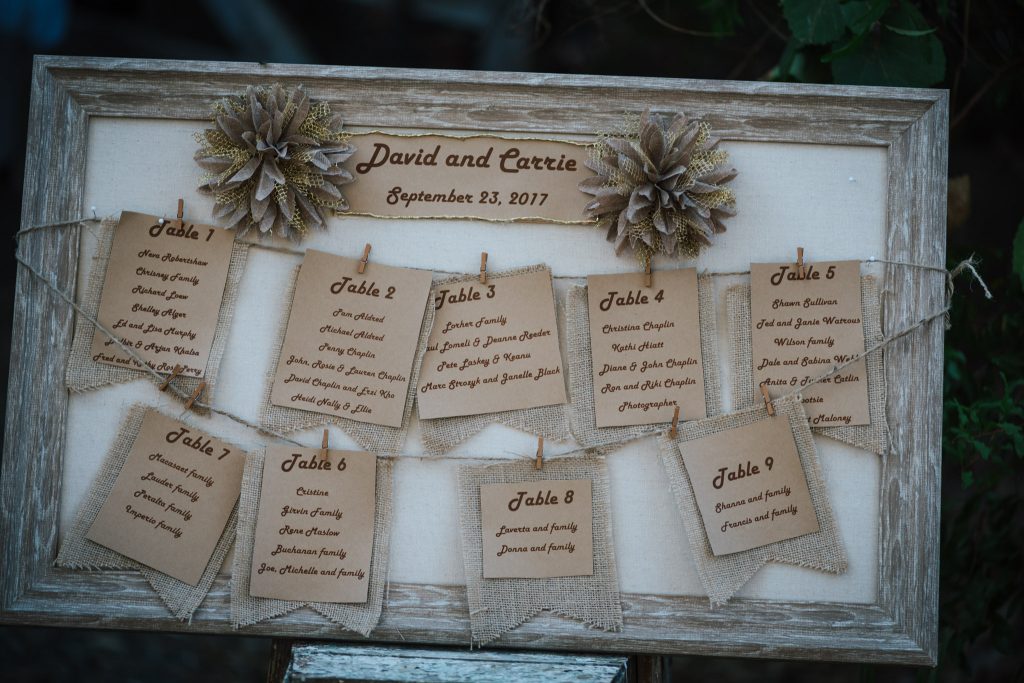 David and Carrie
September 23, 2017
Table 1
Neva Robertshaw
Chrisney Family
Richard Loew
Shelley Alger
Ed and Lisa Murphy
& Arjan Khalsa
Fred and Rose Perry
Table 2
Pam Aldred
Michael Aldred
Penny Chaplin
John, Rosie & Lauren Chaplin
David Chaplin and Erzi Kho
Heidi Nally & Ellie
Table 3
Lorher Family
Lomeli & Deanne Reeder
Pete Laskey & Keanu
Marc Strozyk and Janelle Black
Table 4
Christina Chaplin
Kathi Hiatt
Diane & John Chaplin
Ron and Riki Chaplin
Photographer
Table 5
Shawn Sullivan
Ted and Janie Watrous
Wilson family
Dale and Sabina
Anita & Catlin
Maloney
Table 7
Macasaet family
Lauder family
Peralta family
Imperio family
Table 6
Cristine
Girvin Family
Rene Maslow
Buchanan family
Joe, Michelle and family
Table 8
Laverta and family
Donna and family
Table 9
Shanna and family
Francis and family